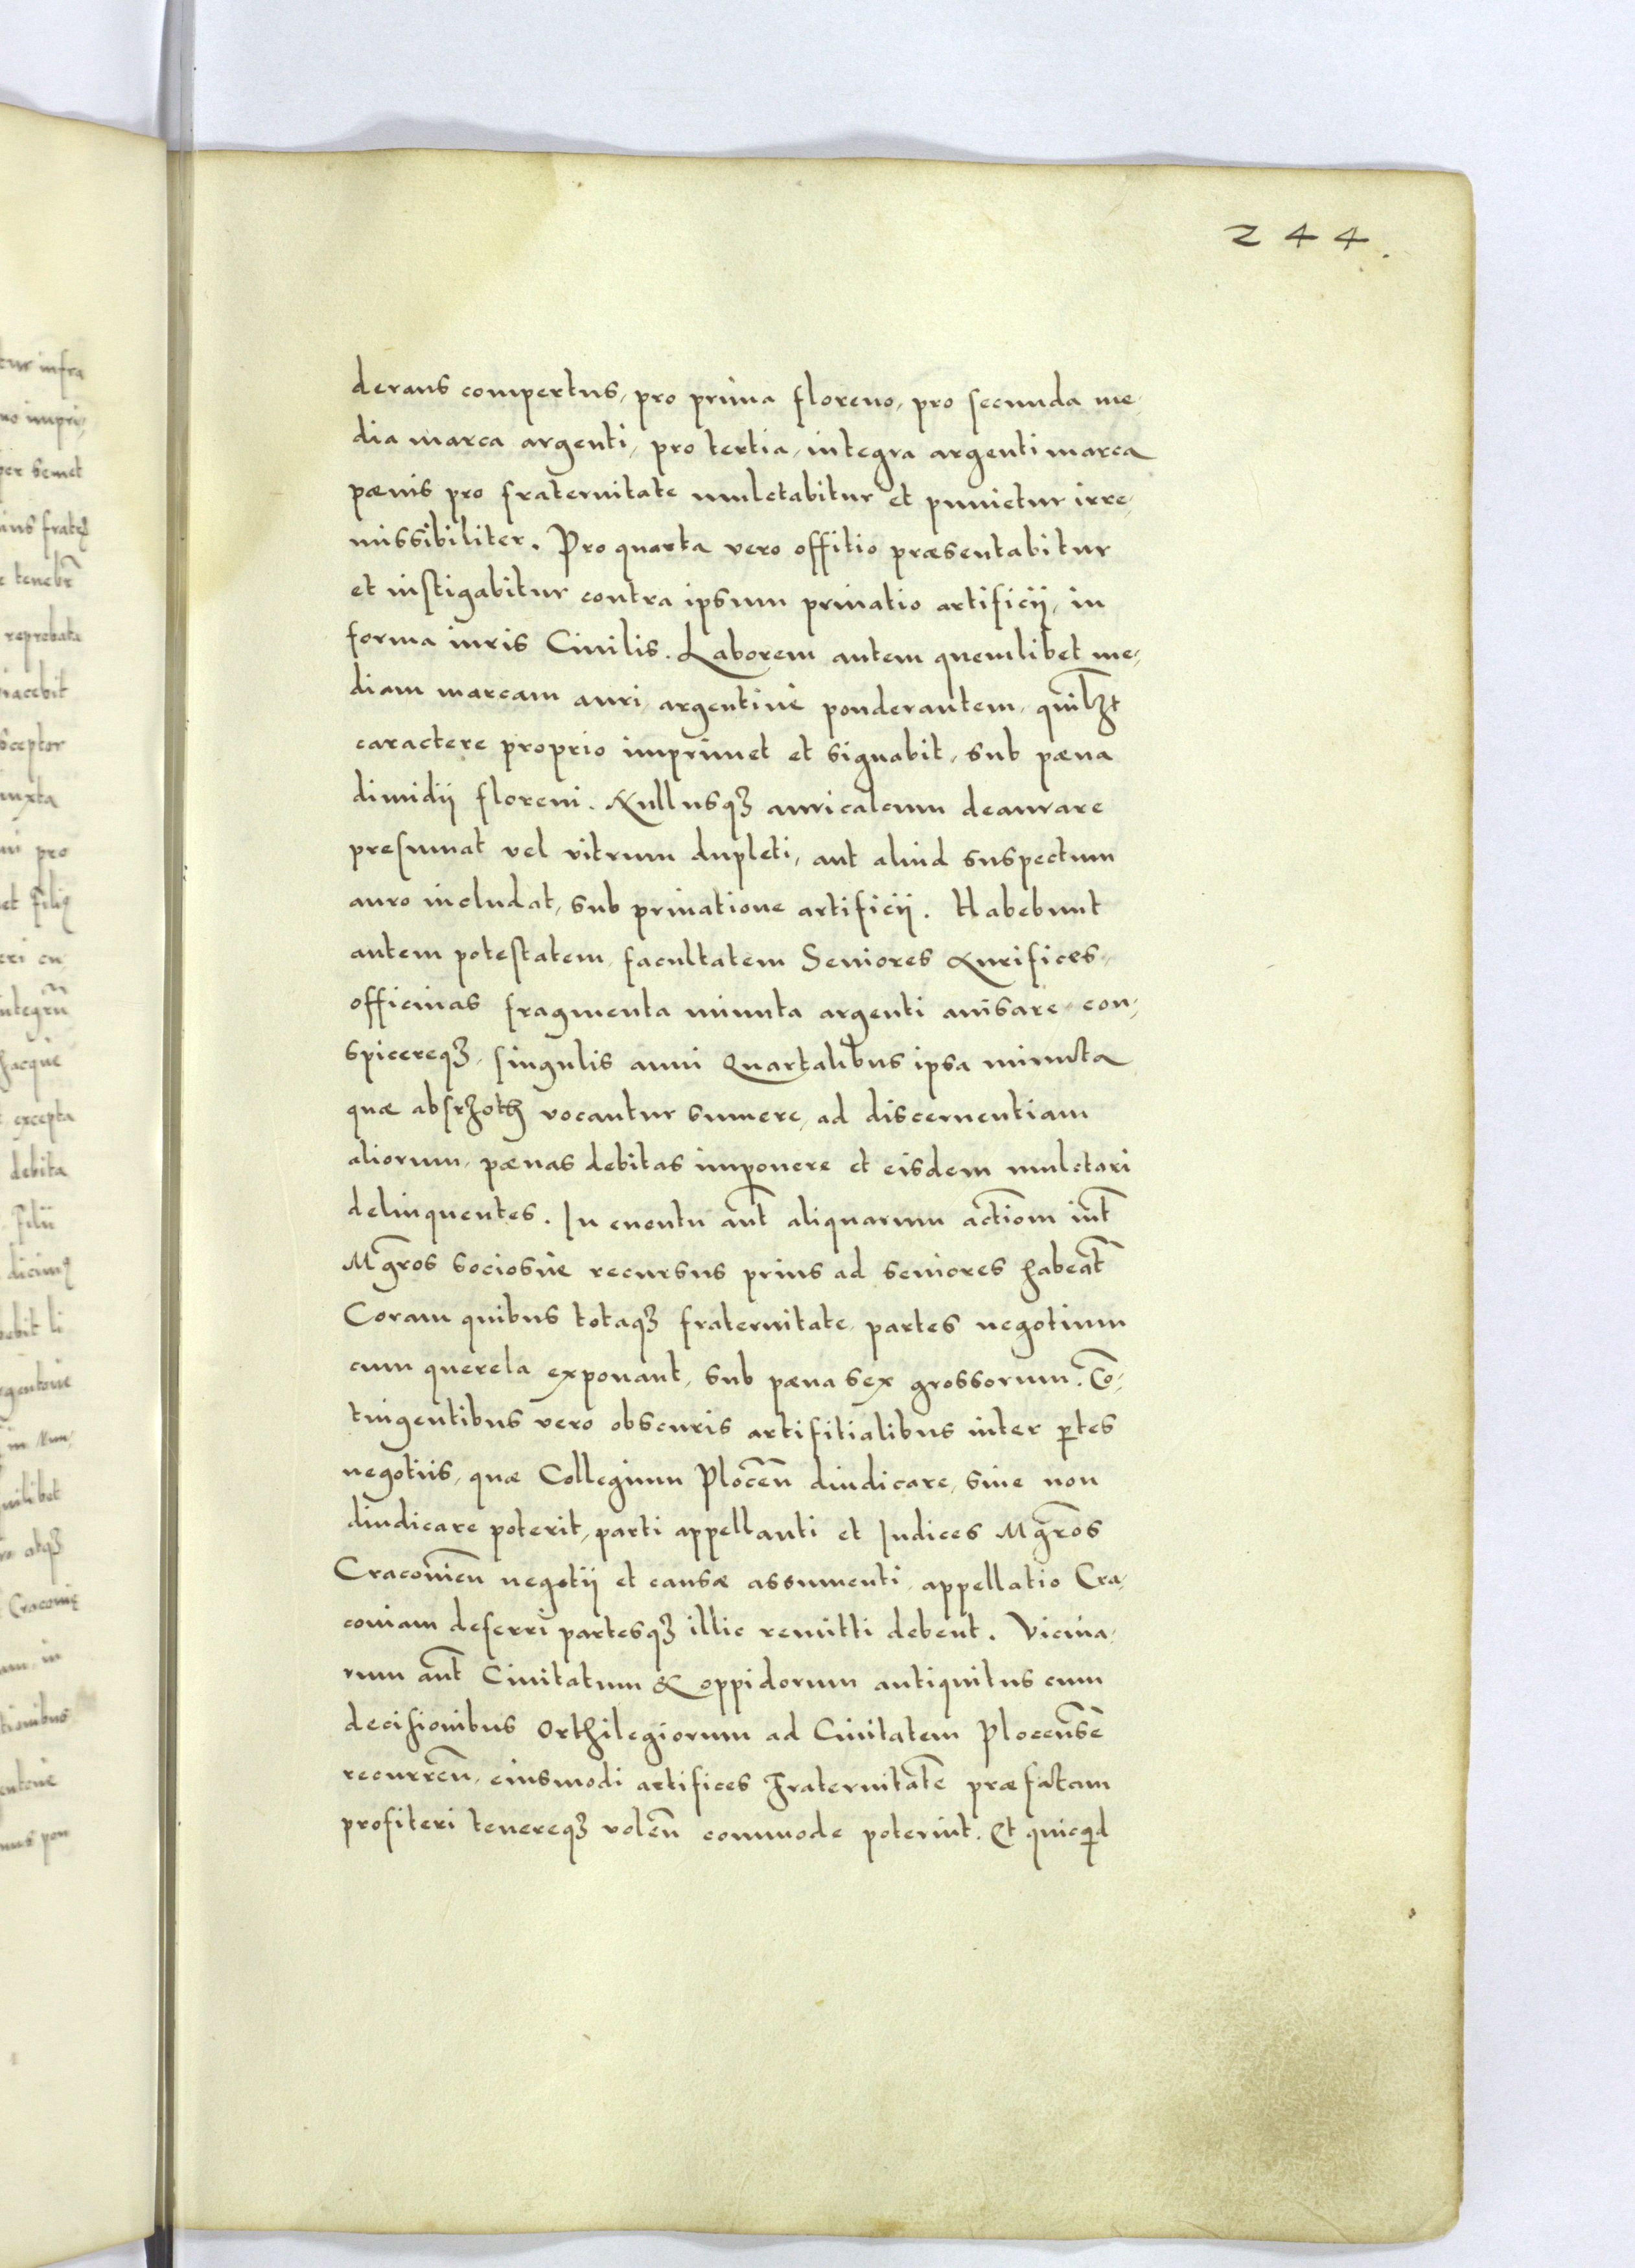 244.
derans compertus, pro prima floreno, pro secunda me,
dia marca argenti, pro tertia, integra argenti marca
pœnis pro fraternitate mulctabitur et punietur irre,
missibiliter. Pro quarta vero offitio præsentabitur
et instigabitur contra ipsum priuatio artificij, in
forma iuris Ciuilis. Laborem autem quemlibet me,
diam marcam auri, argentiue ponderantem, quilꝫt
caractere proprio imprimet et signabit, sub pœna
dimidij floreni. Nullusqꝫ auricalcum deaurare
presumat vel vitrum dupleti, aut aliud suspectum
auro includat, sub priuatione artificij. Habebunt
autem potestatem, facultatem Seniores Aurifices,
officinas fragmenta minuta argenti auisare con,
spicereqꝫ, singulis anni Quartalibus ipsa minuta
quæ absrzoth vocantur sumere, ad discernentiam
aliorum, pœnas debitas imponere et eisdem mulctari
delinquentes. In euentu aut̃ aliquarum actiom̃ int̃
Mgr̃os sociosue recursus prius ad seniores habeat̃
Coram quibus totaqꝫ fraternitate, partes negotium
cum querela exponant, sub pœna sex grossorum. Cõ,
tingentibus vero obscuris artifitialibus inter ꝑtes
negotiis, quæ Collegium Plocen̄ diudicare, siue non
diudicare poterit, parti appellanti et Iudices Mgr̃os
Cracouien̄ negotij et causæ assumenti, appellatio Cra,
couiam deferri partesqꝫ illic remitti debent. Vicina,
rum aut̃ Ciuitatum & oppidorum antiquitus cum
decisionibus Orthilegiorum ad Ciuitatem Plocensē
recurren̄, eiusmodi artifices Fraternitatē præfatam
profiteri tenereqꝫ volen̄ commode poterint. Et quicqͥd